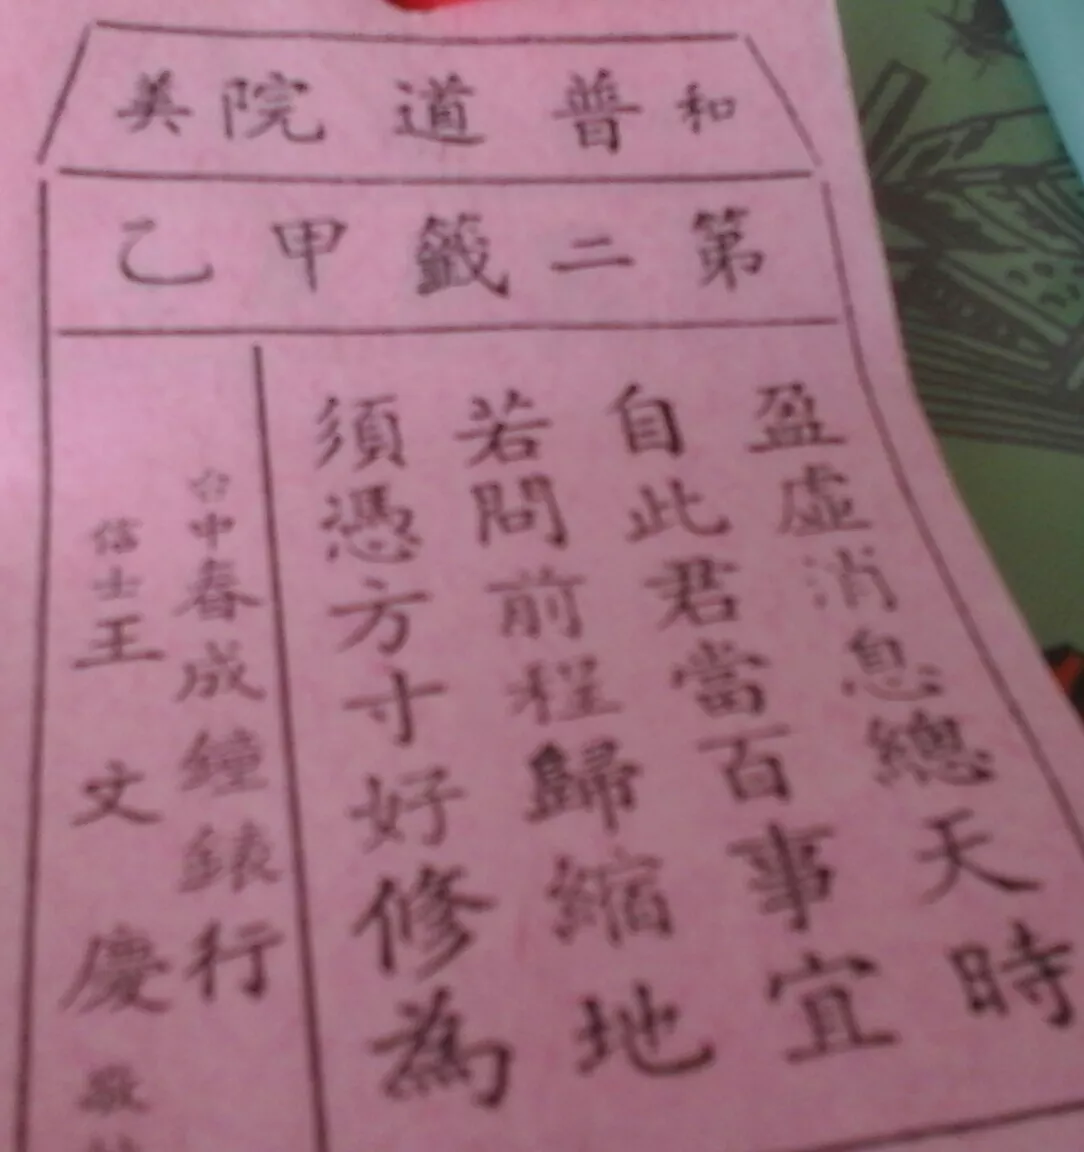 和普道院美
第二籤甲乙
盈虛消息總天時
自此君當百事宜
若問前程歸縮地
須憑方寸好修為
台中春成鐘錶行
信士王文慶敬